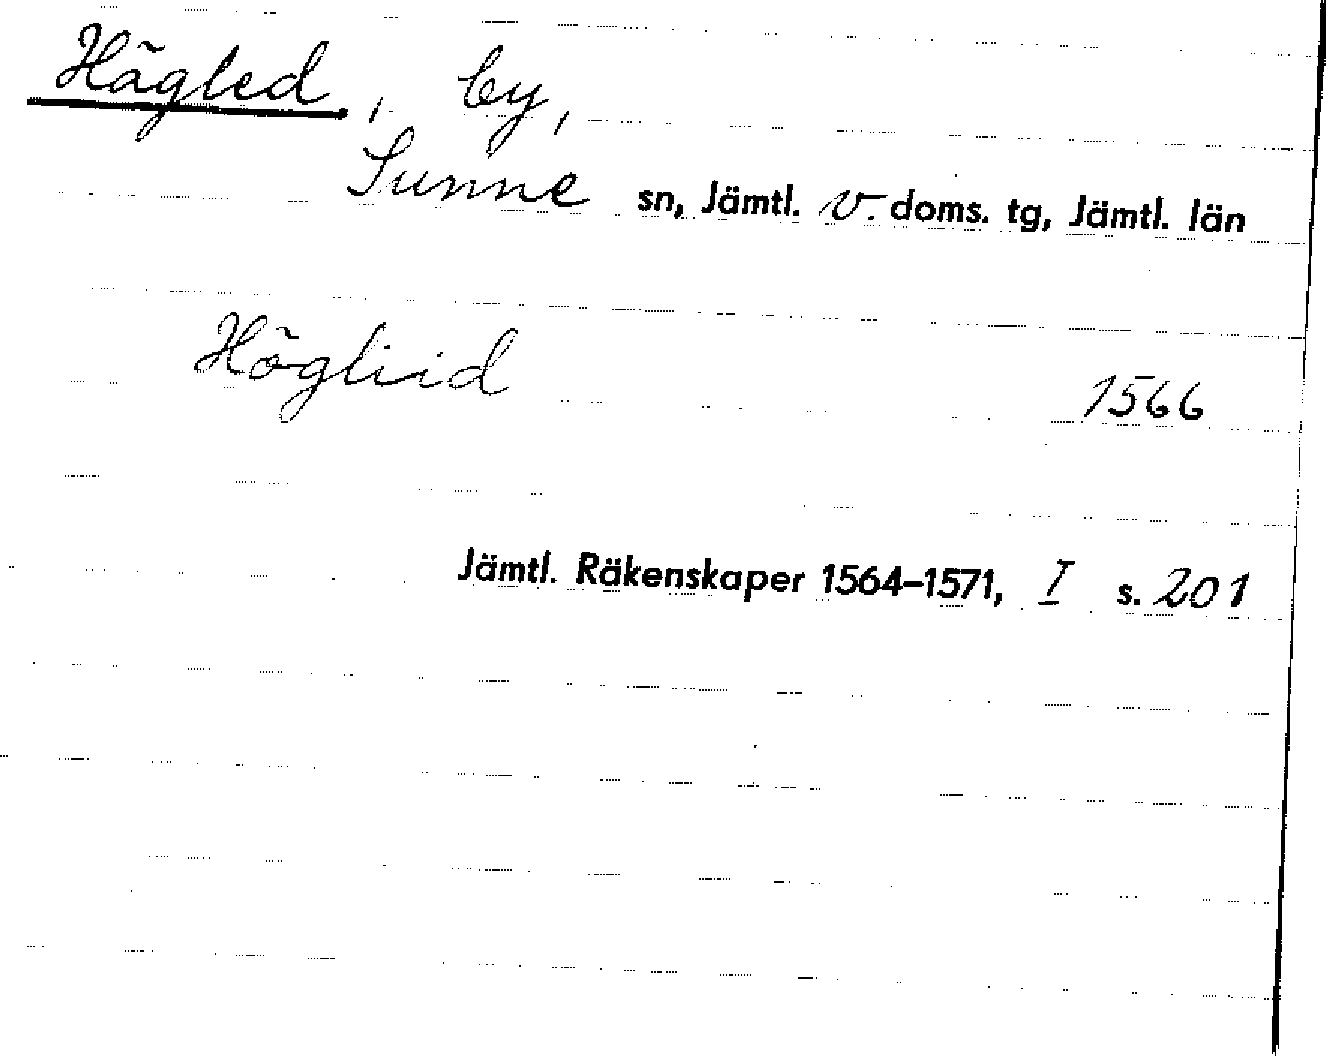 Hägled, by,
Sunne sn, Jämtl. v. doms. tg, Jämtl. län
Högliid 1566
Jämtl. Räkenskaper 1564–1571, I s. 201